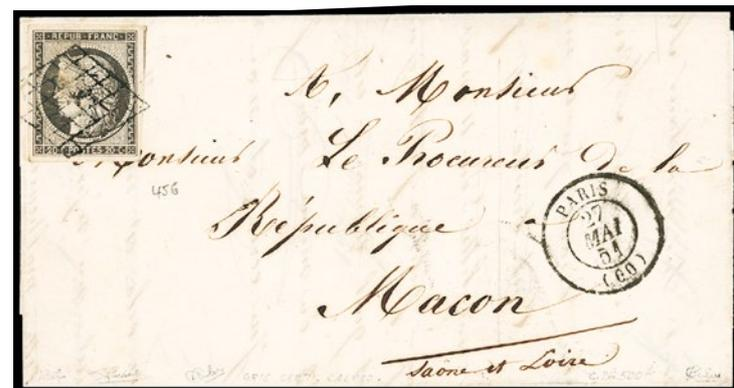 REPUB. FRANC.
20 C POSTES 20 C
A, Monsieur
Monsieur Le Procureur de la
456
République
PARIS
27
MAI
51
(60)
Macon
Saône et Loire